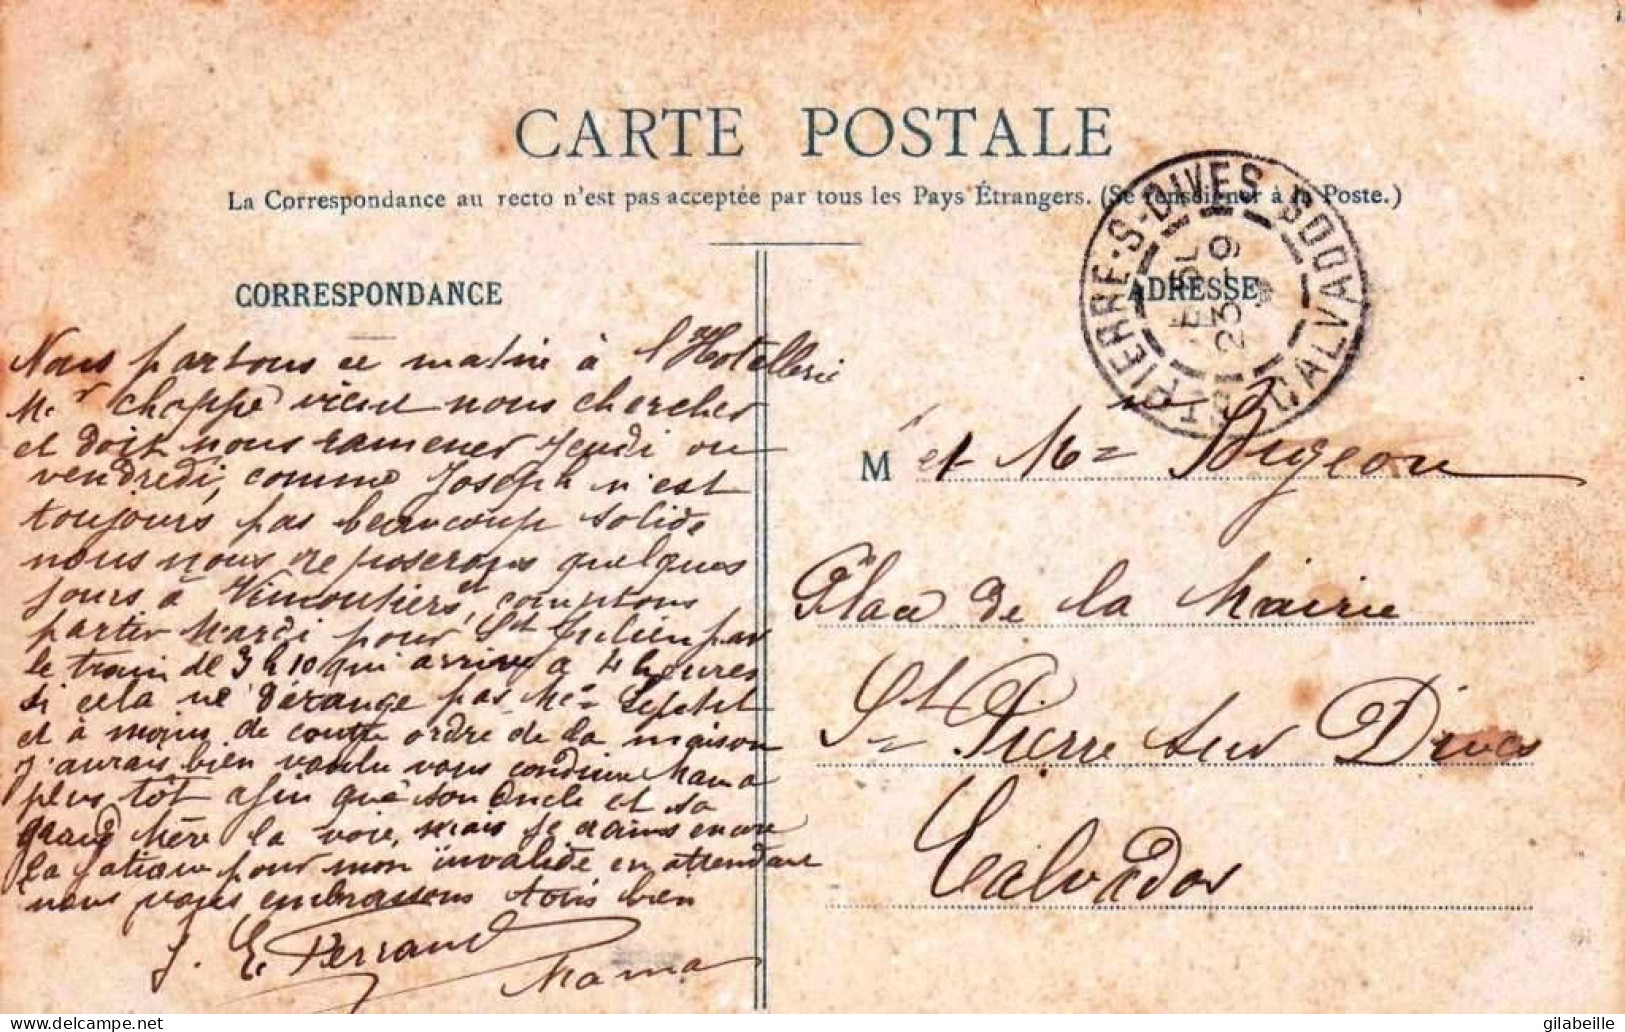 CARTE POSTALE
La Correspondance au recto n'est pas acceptée par tous les Pays Étrangers. (Se renseigner à la Poste.)
CORRESPONDANCE
Nous partons ce matin à l'Hotellerie
Mr Chappé vient nous chercher
et doit nous ramener Jeudi ou
vendredi, comme Joseph n'est
toujours pas beaucoup solide
nous nous reposerons quelques
jours à Vimoutiers, et comptons
partir Mardi pour St Julien par
le train de 3h10 qui arrive a 4 heures
si cela ne dérange pas Me Lepetit
et à moins de contre ordre de la maison
J'aurais bien voulu vous conduire Mama
plus tôt afin que son Oncle et sa
grand Mère la voie, mais je crains encore
la fatigue pour mon invalide en attendant
nous vous embrassons tous bien
J. E. Ferrand
Mama
ADRESSE
ST PIERRE-S-DIVES CALVADOS
23 -9
M et Me Bigeon
Place de la Mairie
St Pierre sur Dives
Calvados
gilabeille